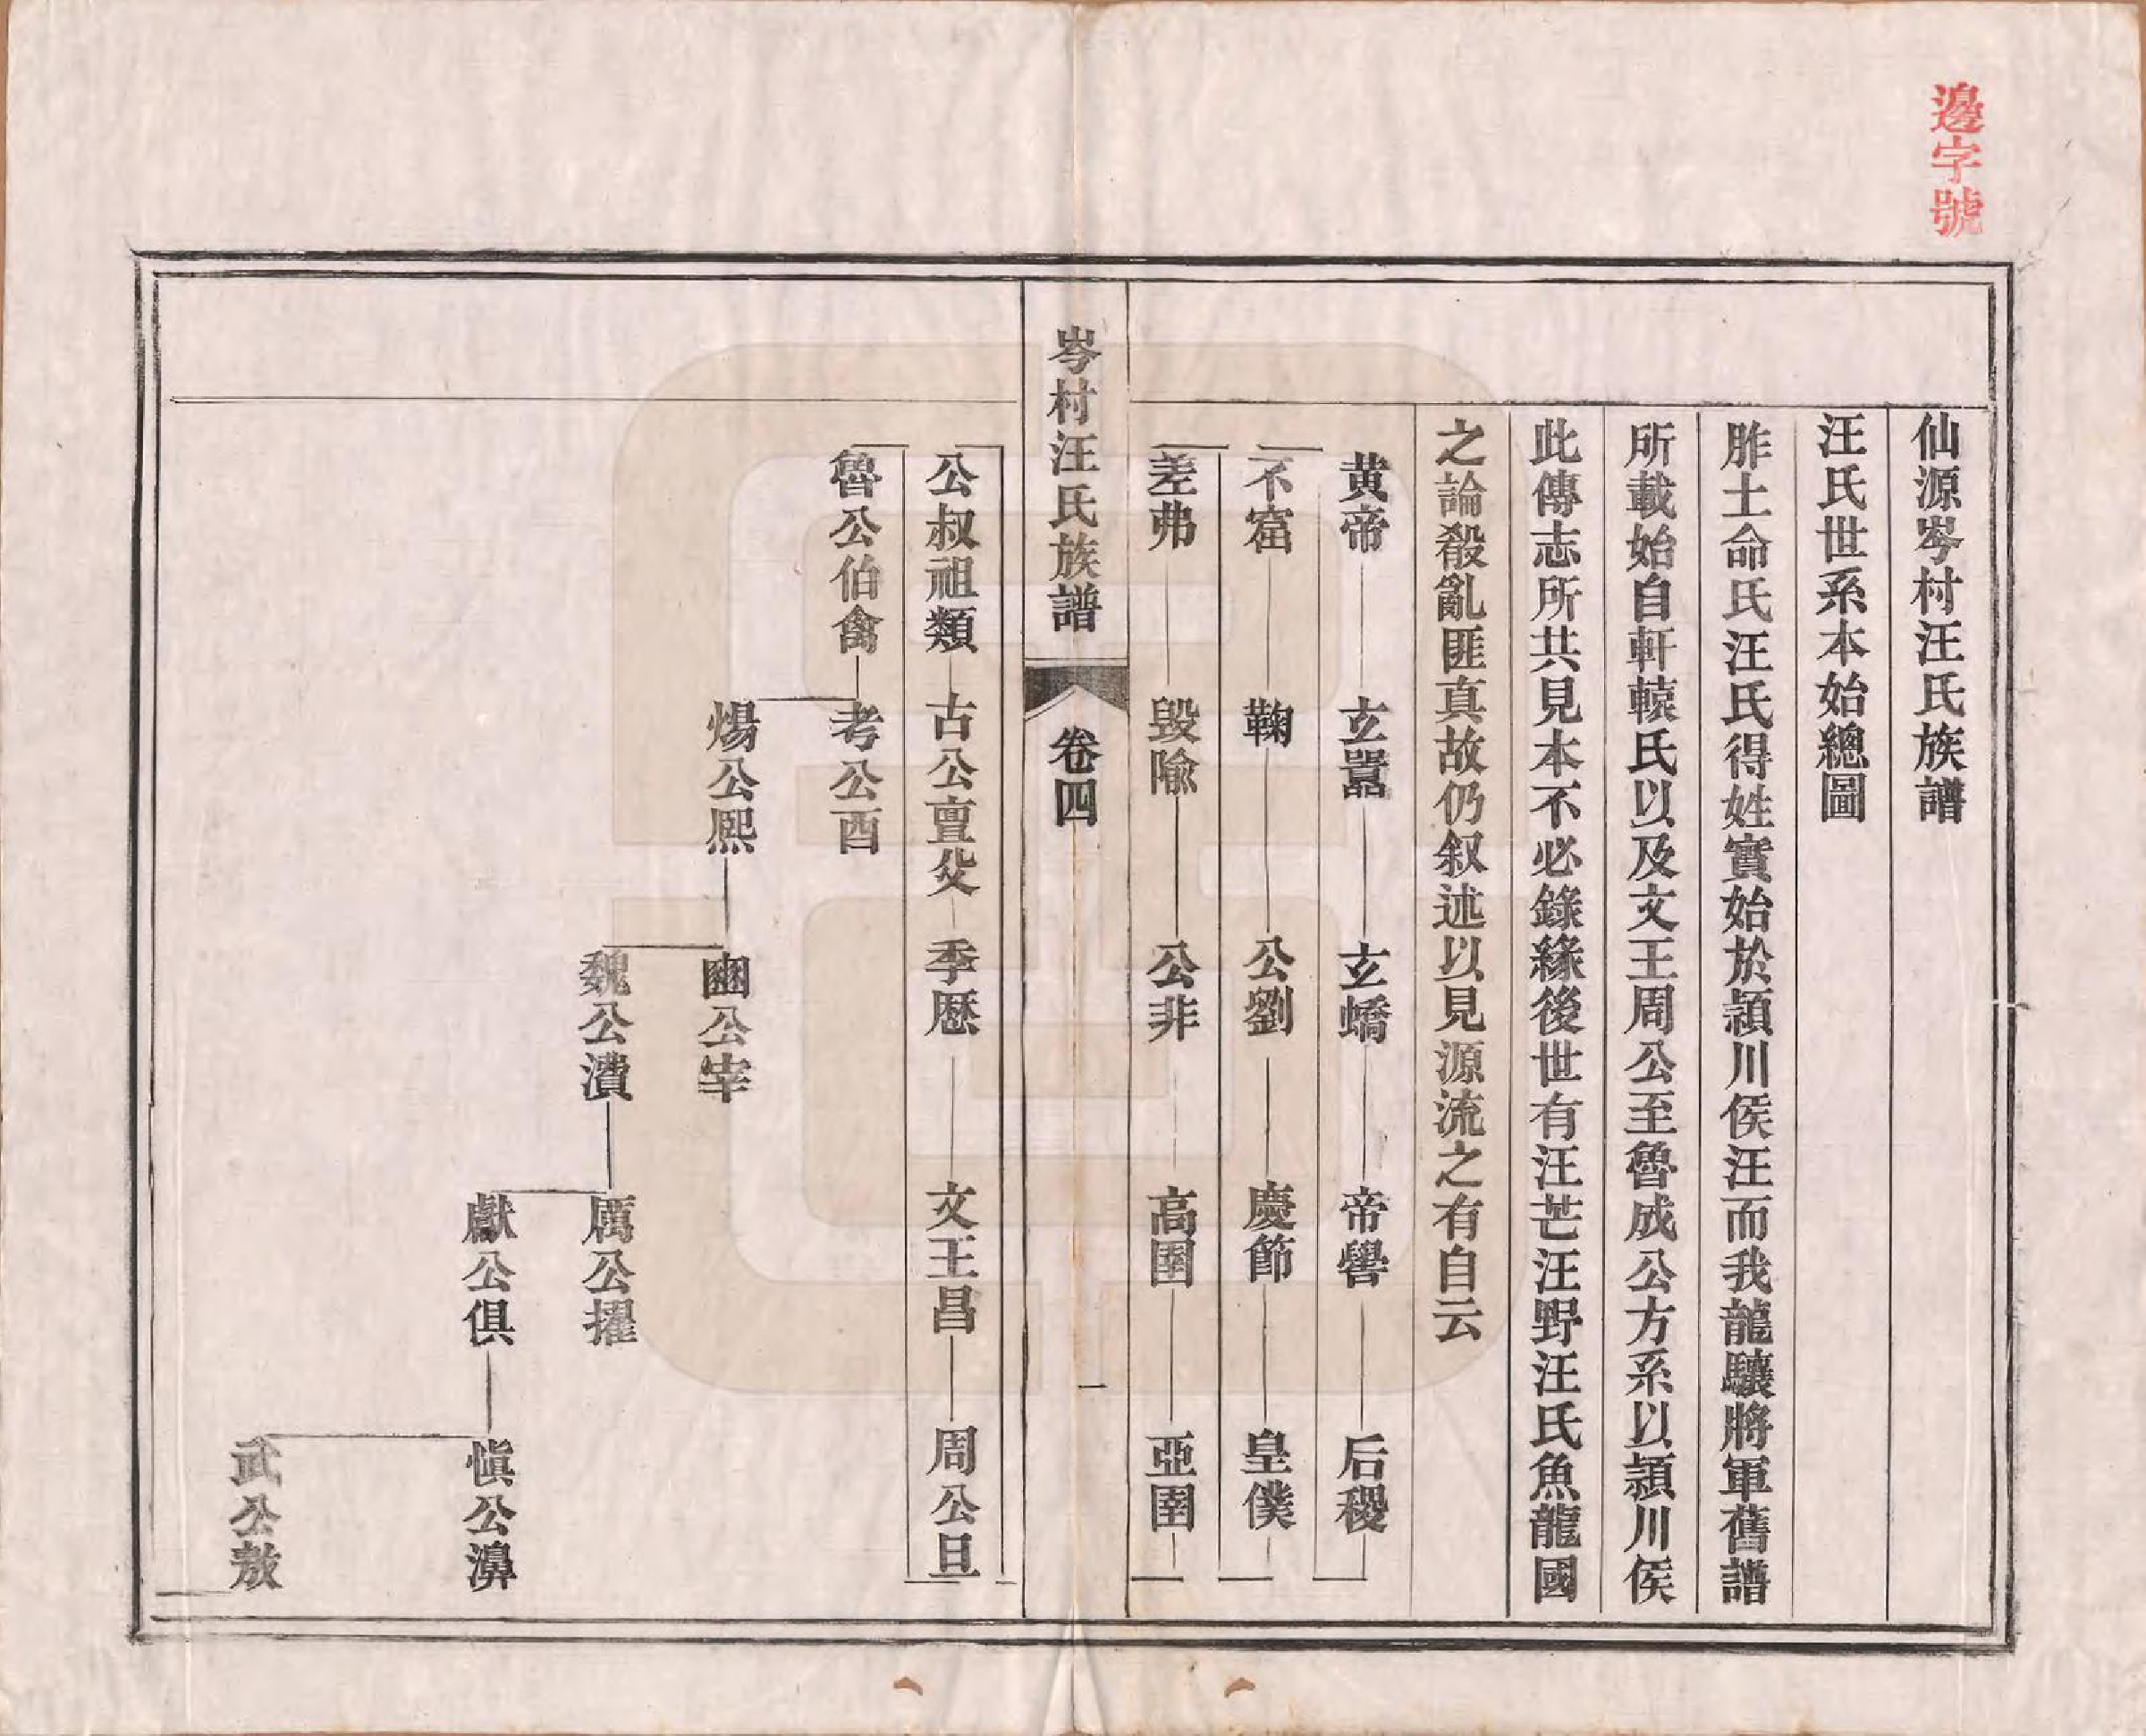 邊字號
仙源岑村汪氏族譜
汪氏世系本始總圖
胙土命氏汪氏得姓實始於潁川侯汪而我龍驤將軍舊譜
所載始自軒轅氏以及文王周公至魯成公方系以潁川侯
此傳志所共見本不必錄緣後世有汪芒汪野汪氏魚龍國
之論殽亂匪真故仍叙述以見源流之有自云
黄帝 玄囂 玄蟜 帝嚳 后稷
不窋 鞠 公劉 慶節 皇僕
差弗 毀隃 公非 高圉 亞圉
岑村汪氏族譜 卷四 一
公叔祖類 古公亶父 季歷 文王昌 周公旦
魯公伯禽 考公酉
煬公熙 幽公宰
魏公㵒 厲公擢
獻公俱 慎公濞
武公敖